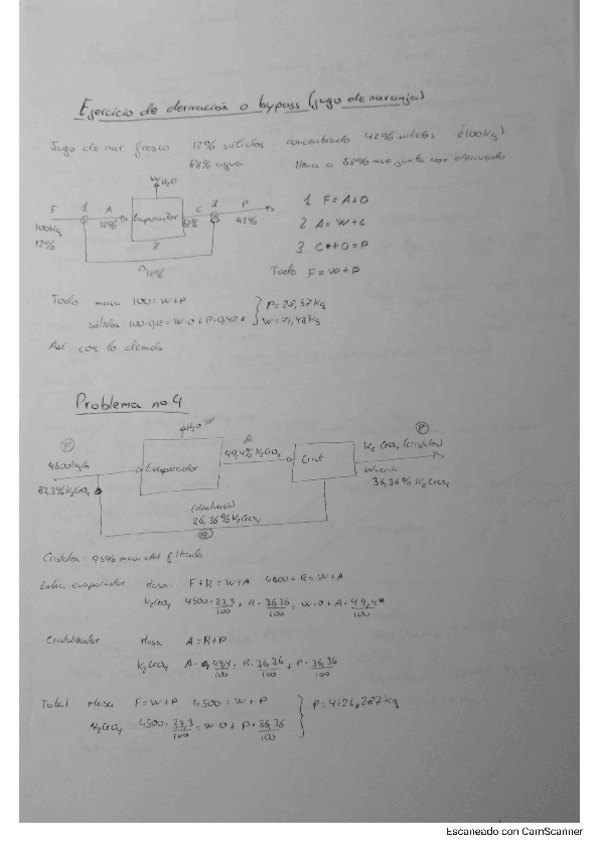 Ejercicio de derivación o bypass (jugo de naranja)
Jugo de nar. fresco 12% sólidos concentrado 42% sólidos (100kg)
88% agua Hasta 58% se junta con derivado
W H₂O
F 1 A Evaporador C 3 P
100kg 12% 58% 42%
12% 2
D 12%
1 F=A+D
2 A=W+C
3 C+D=P
Todo F=W+P
Todo masa 100=W+P
sólidos 100·0,12=W·0+P·0,42
P=28,57kg
W=71,43kg
Así con lo demás
Problema nº4
H₂O W
F A P
4500kg/h Evaporador 49,4% K₂CrO₄ Crist K₂CrO₄ (cristales)
33,3% K₂CrO₄ 36,36% K₂CrO₄
36,36% K₂CrO₄
R
Cristales: 95% masa del filtrado
Entra evaporador Masa: F+R=W+A 4500+R=W+A
K₂CrO₄ 4500·33,3/100+R·36,36/100=W·0+A·49,4/100
Cristalizador Masa A=R+P
K₂CrO₄ A·49,4/100=R·36,36/100+P·36,36/100
Total Masa F=W+P 4500=W+P
K₂CrO₄ 4500·33,3/100=W·0+P·36,36/100
P=4121,287kg
Escaneado con CamScanner